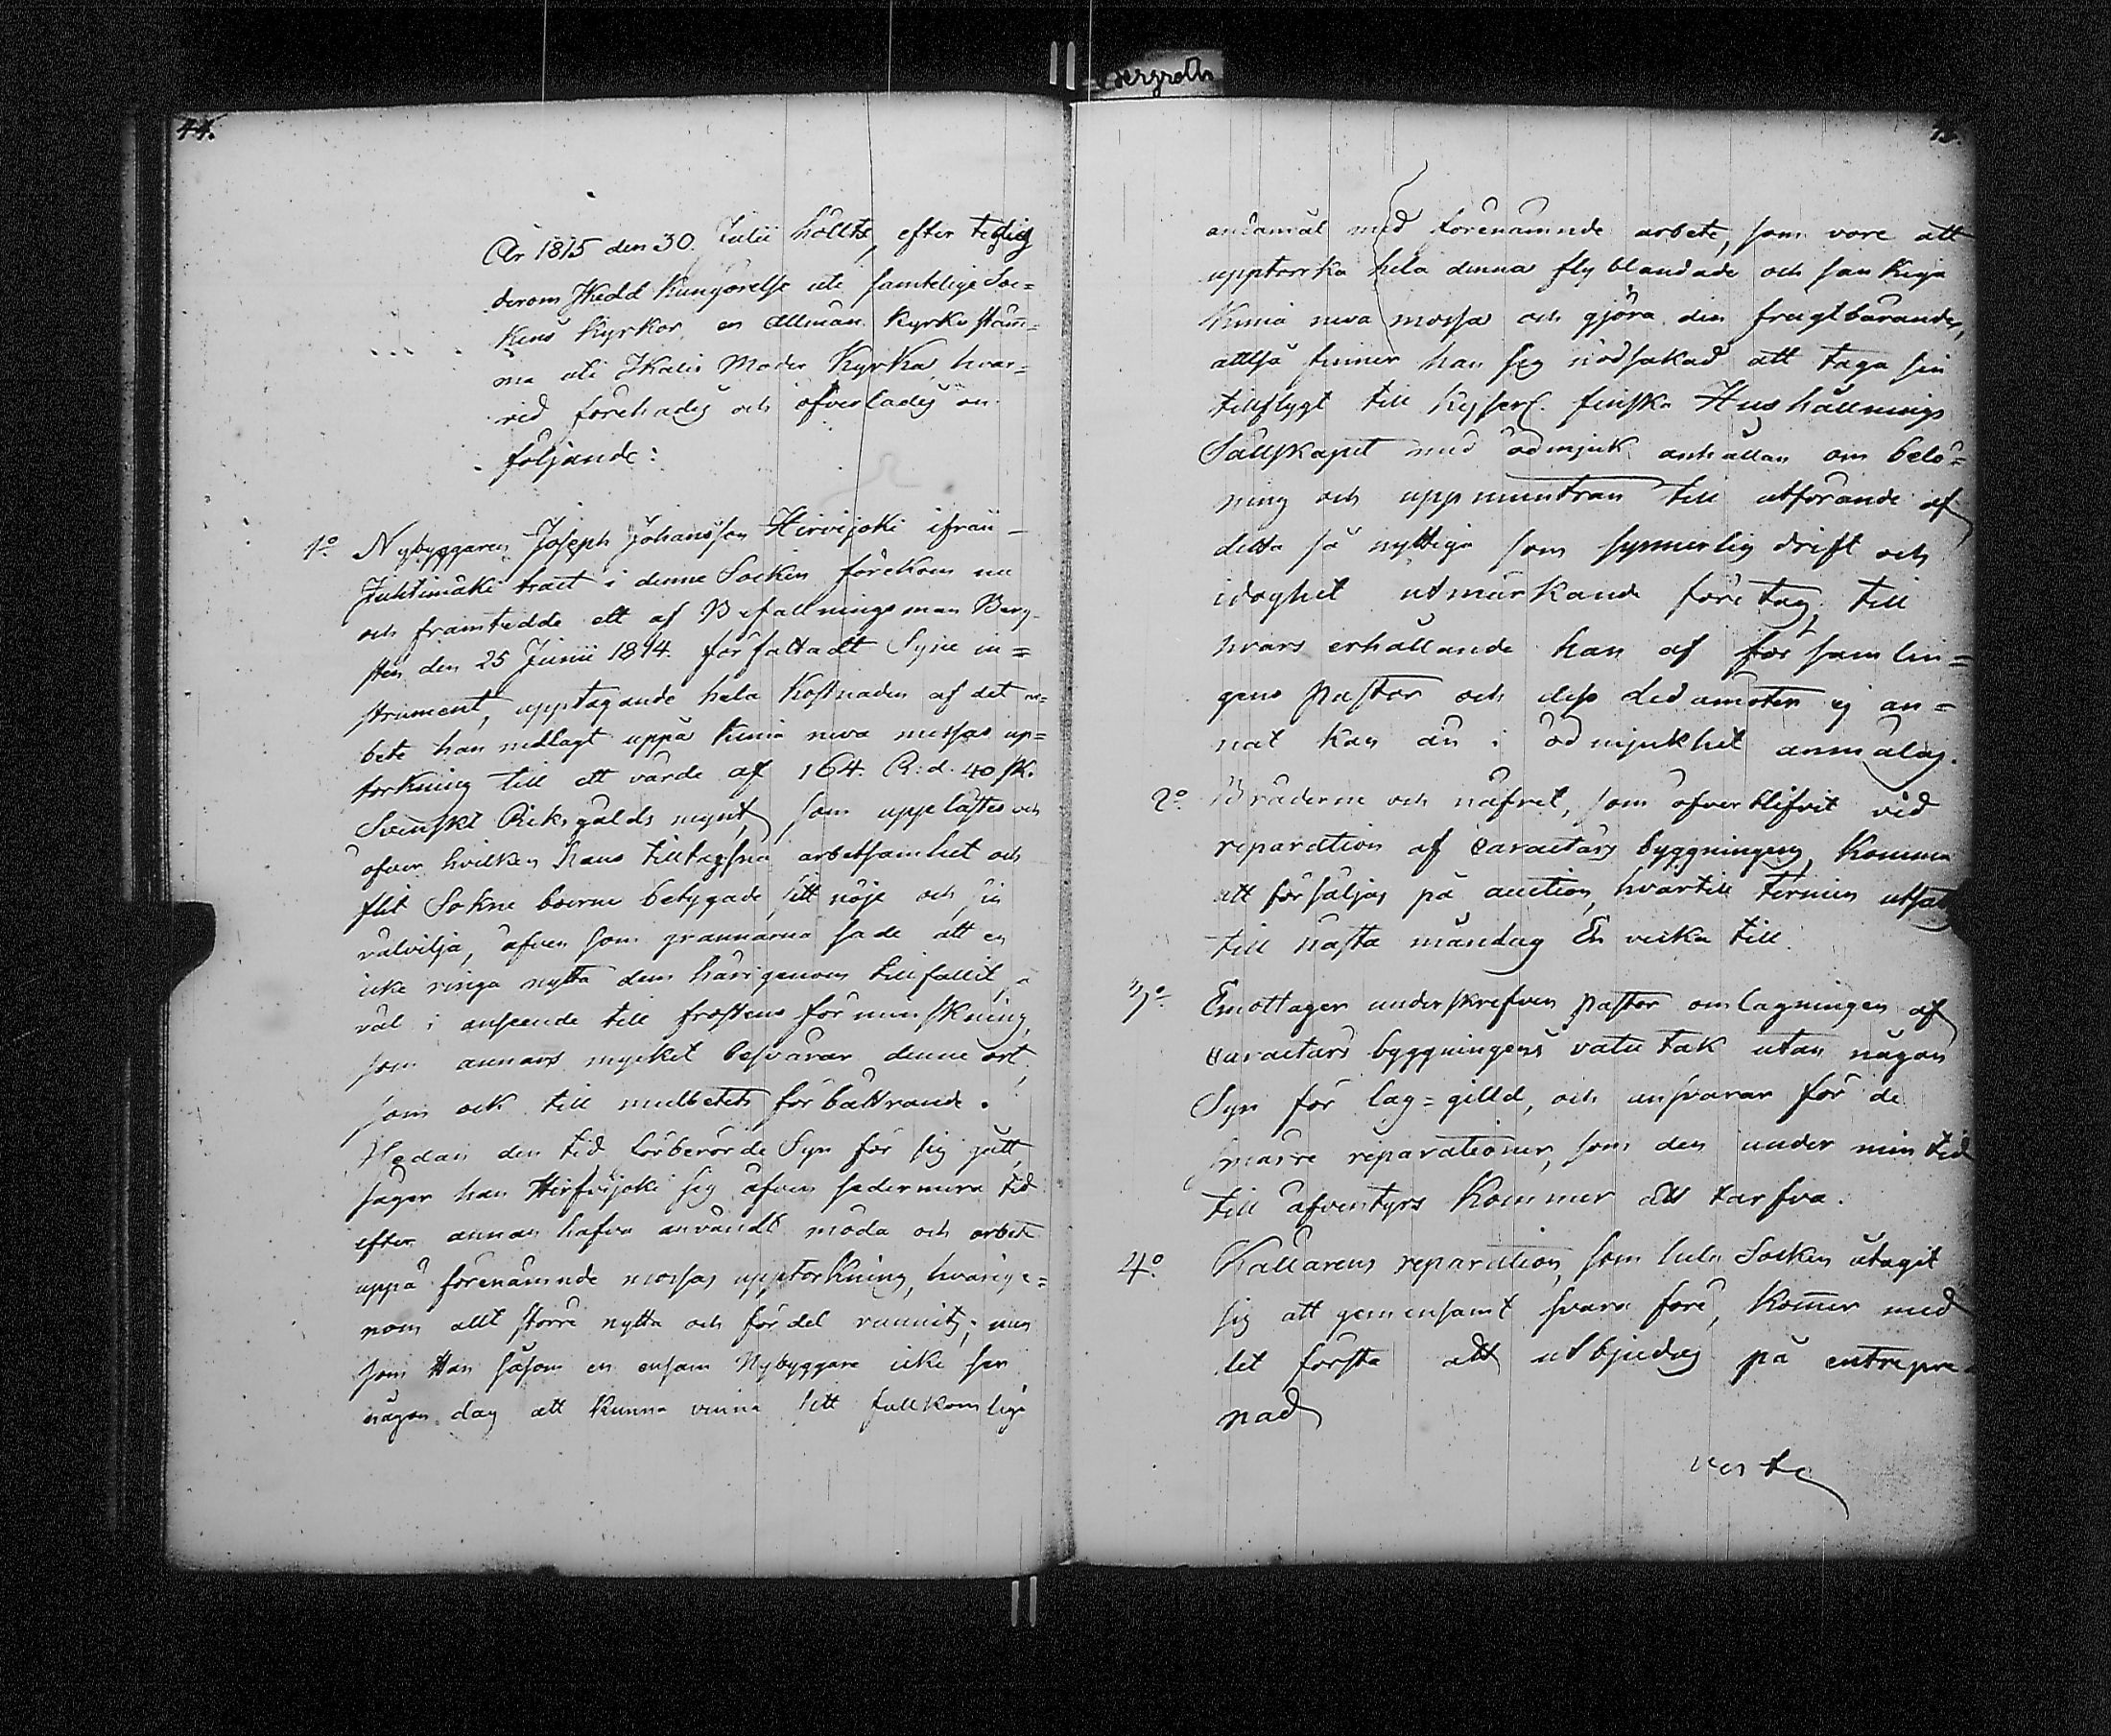 Bergroth
44.
År 1815 den 30. Julii hölltz, efter tidlig
derom skedd kungörelse uti samtelige Soc=
kens Kyrkor, en Allmän Kyrko stäm=
ma uti Ikalis Moder Kyrka, hvar=
vid förehades och öfverlades om
följande:
1o Nybyggaren Joseph Johansson Hirvijoki ifrån
Juhtimäki tract i denne Socken förekom nu
och framtedde ett af Befallningsman Berg=
sten den 25 Junii 1814. författadt Syne in=
strument, upptagande hela kostnaden af det ar=
bete han nedlagt uppå Kinia neva mossas up=
torkning till ett värde af 164. R:d. 40 sk.
Svenskt Riksgälds mynt, som upplästes och
öfver hvilken hans arbetsamhet och
flit Sokne boerne betygade sitt nöje och sin
välvilja, äfven som grannarna sade att en
icke ringa nytta dem härigenom tillfallit, så
väl i anseende till frostens förminskning,
som annars mycket besvärar denne ort,
som ock till mulbetets förbättrande.
Sedan den tid förberörde Syn för sig gått,
säger han Hirfvijoki sig äfven sedermera tid
efter annan hafva användt möda och arbete
uppå förenämnde mossas upptorkning, hvarige=
nom allt större nytta och fördel vunnits; men
som Han såsom en ensam Nybyggare icke ser
någon dag att kunna vinna sitt fullkomliga
ändamål med förenämnde arbete, som vore att
upptorrka hela denna fly blandade och sankiga
Kinia neva mossa och gjöra den fruktbärande,
alltså finner han sig nödsakad att taga sin
tillflygt till Kejserl. finska Hushållnings
Sällskapet med ödmjuk anhållan om belö=
ning och uppmuntran till utförande af
detta så nyttiga som synnerlig drift och
idoghet utmärkande företag, till
hvars erhållande han af församlin=
gens Pastor och dess Ledamöter ej an=
nat kan än i ödmjukhet anmälas.
2o Bräderne och näfret, som öfverblifvit vid
reparation af Caractärs byggningen, komma
att försäljas på auction, hvartill termin utsattes
till nästa måndag En vecka till.
3o Emottager underskrefven Pastor omlagningen af
Caractärs byggningens vatu tak utan någon
Syn för lag=gilld, och ansvarar för de
smärre reparationer, som den under min tid
till äfventyrs kommer att tarfva.
4o Källarens reparation, som hela Socken åtagit
sig att gemensamt svara före, kommer med
det första att utbjudas på entrepre=
nad
verte